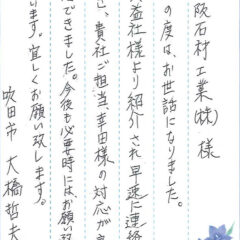 阪石材工業(株)様
の度は、お世話になりました。
益社様より紹介され早速に連絡
き、貴社ご担当、幸田様の対応が
できました。今後も必要時にはお願い致
います。宜しくお願い致します。
吹田市 大橋哲夫